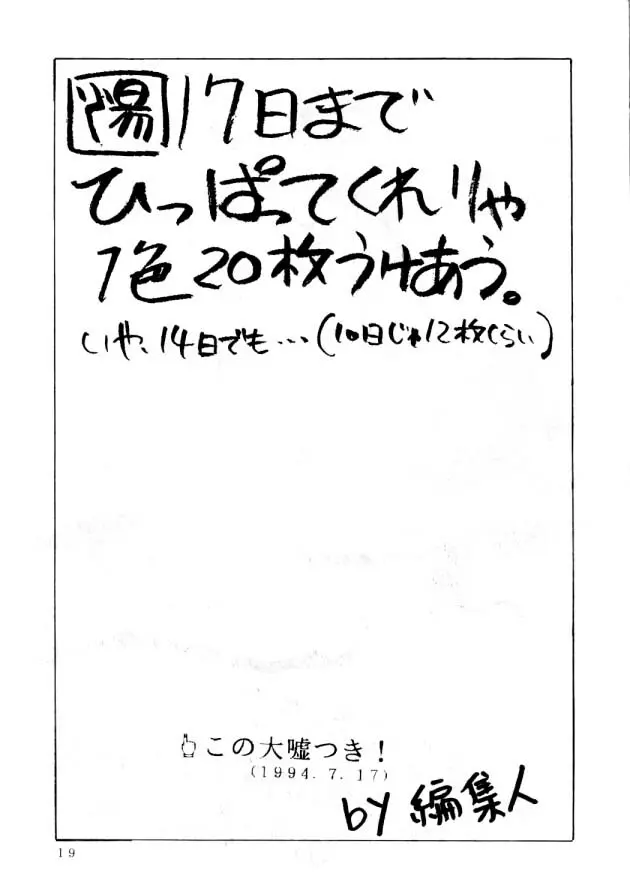 陽 17日まで
ひっぱってくれりゃ
1色20枚うけあう。
いや、14日でも…(10日じゃ12枚くらい)
この大嘘つき!
(1994. 7. 17)
by 編集人
19